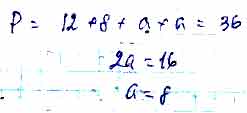 P = 12 + 8 + a + a = 36
2a = 16
a = 8